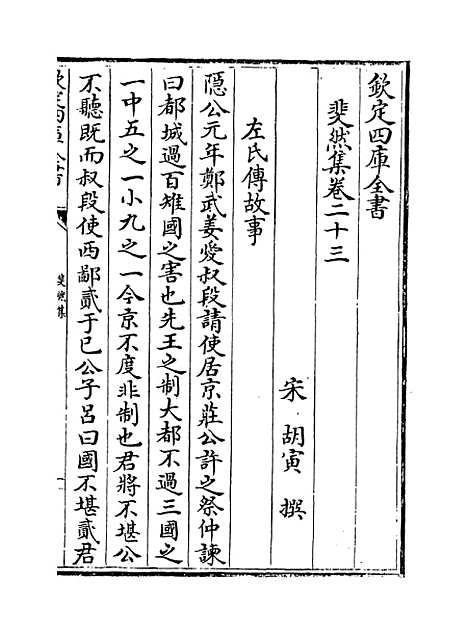 欽定四庫全書
斐然集卷二十三
宋 胡寅 撰
左氏傳故事
隱公元年鄭武姜愛叔段請使居京莊公許之祭仲諫
曰都城過百雉國之害也先王之制大都不過三國之
一中五之一小九之一今京不度非制也君將不堪公
不聽既而叔段使西鄙貳于已公子呂曰國不堪貳君
欽定四庫全書
斐然集